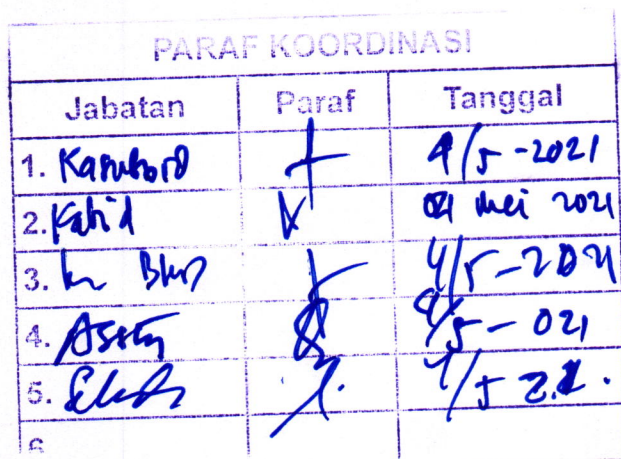 PARAF KOORDINASI
Jabatan Paraf Tanggal
1. Kasubbid 4/5-2021
2. Kabid 04 Mei 2021
3. 4/5-2021
4. 4/5-021
5. 4/5 21.
6